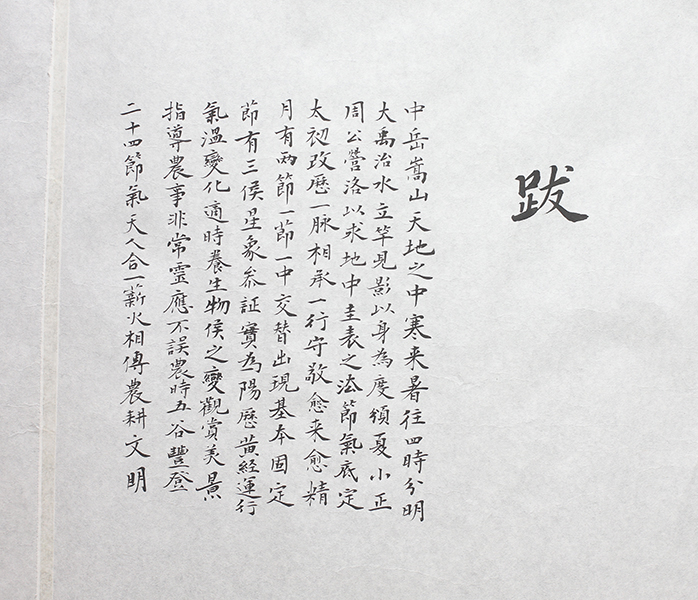 跋
中岳嵩山天地之中寒来暑往四時分明
大禹治水立竿見影以身為度頒夏小正
周公營洛以求地中圭表之法節氣底定
太初改歷一脉相承一行守敬愈来愈精
月有兩節一節一中交替出現基本固定
節有三侯星象參証實為陽歷黃經運行
氣溫變化適時養生物侯之變觀賞美景
指導農事非常靈應不誤農時五谷豐登
二十四節氣天人合一薪火相傳農耕文明